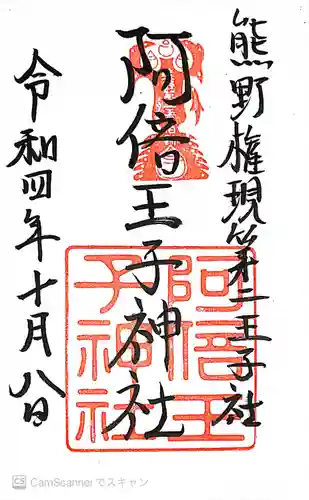 熊野権現第二王子社
阿倍王子神社
令和四年十月八日
阿倍王
子神社
CS CamScanner でスキャン